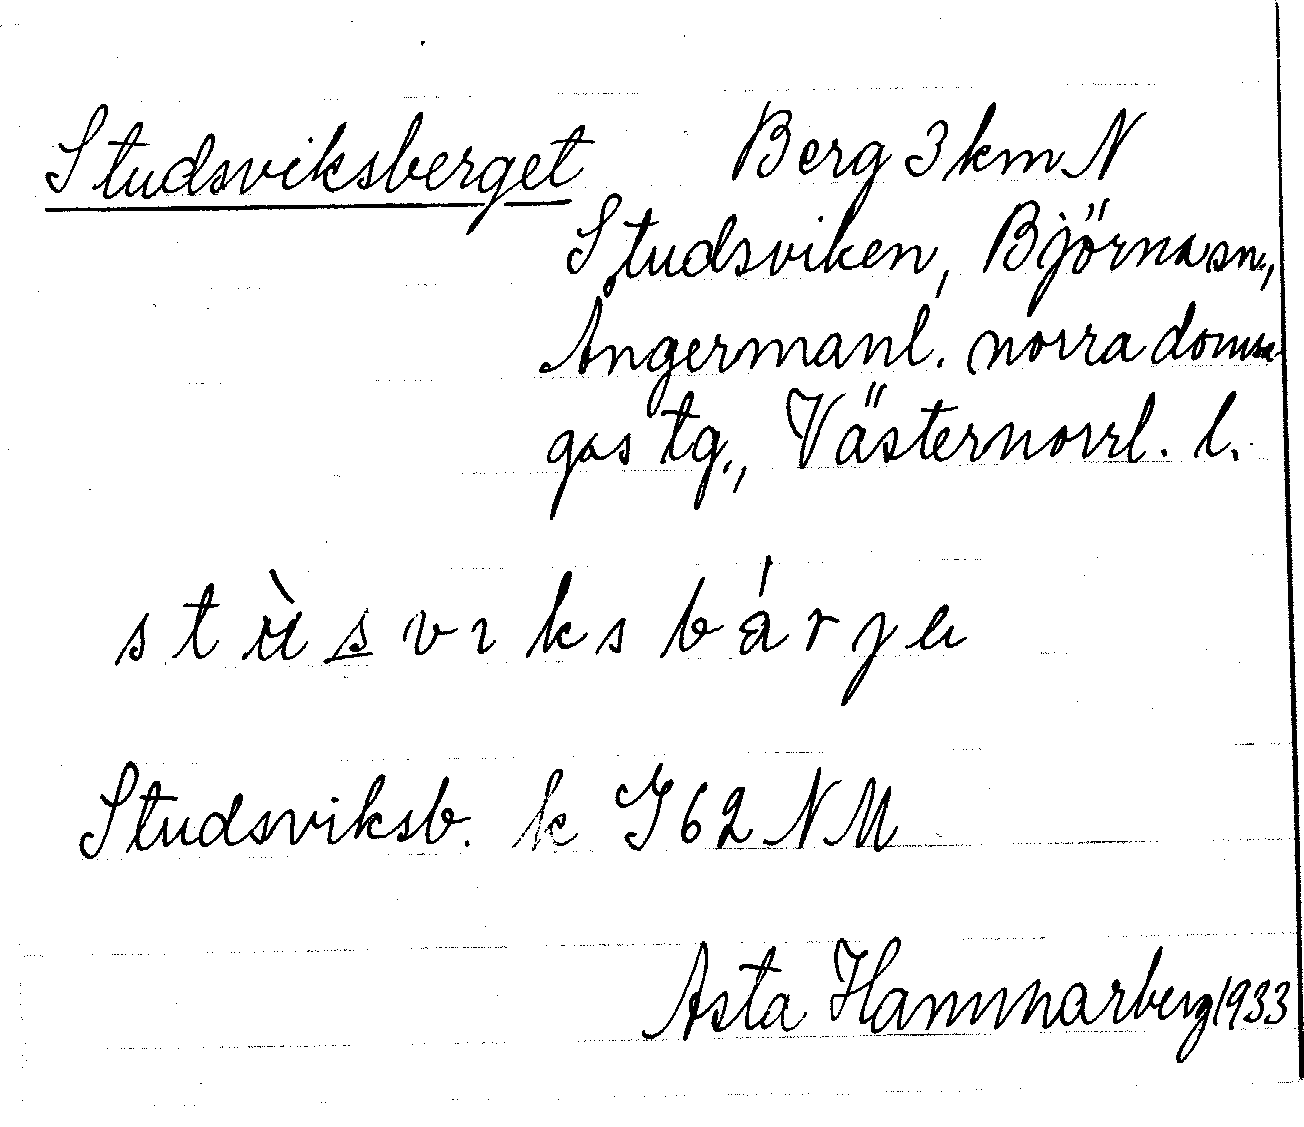 Studsviksberget Berg 3 km N
Studsviken, Björna sn.,
Ångermanl. norra domsa
gas tg., Västernorrl. l.
stùsvıksbárjɐ
Studsviksb. k J 62 NM
Asta Hammarberg 1933